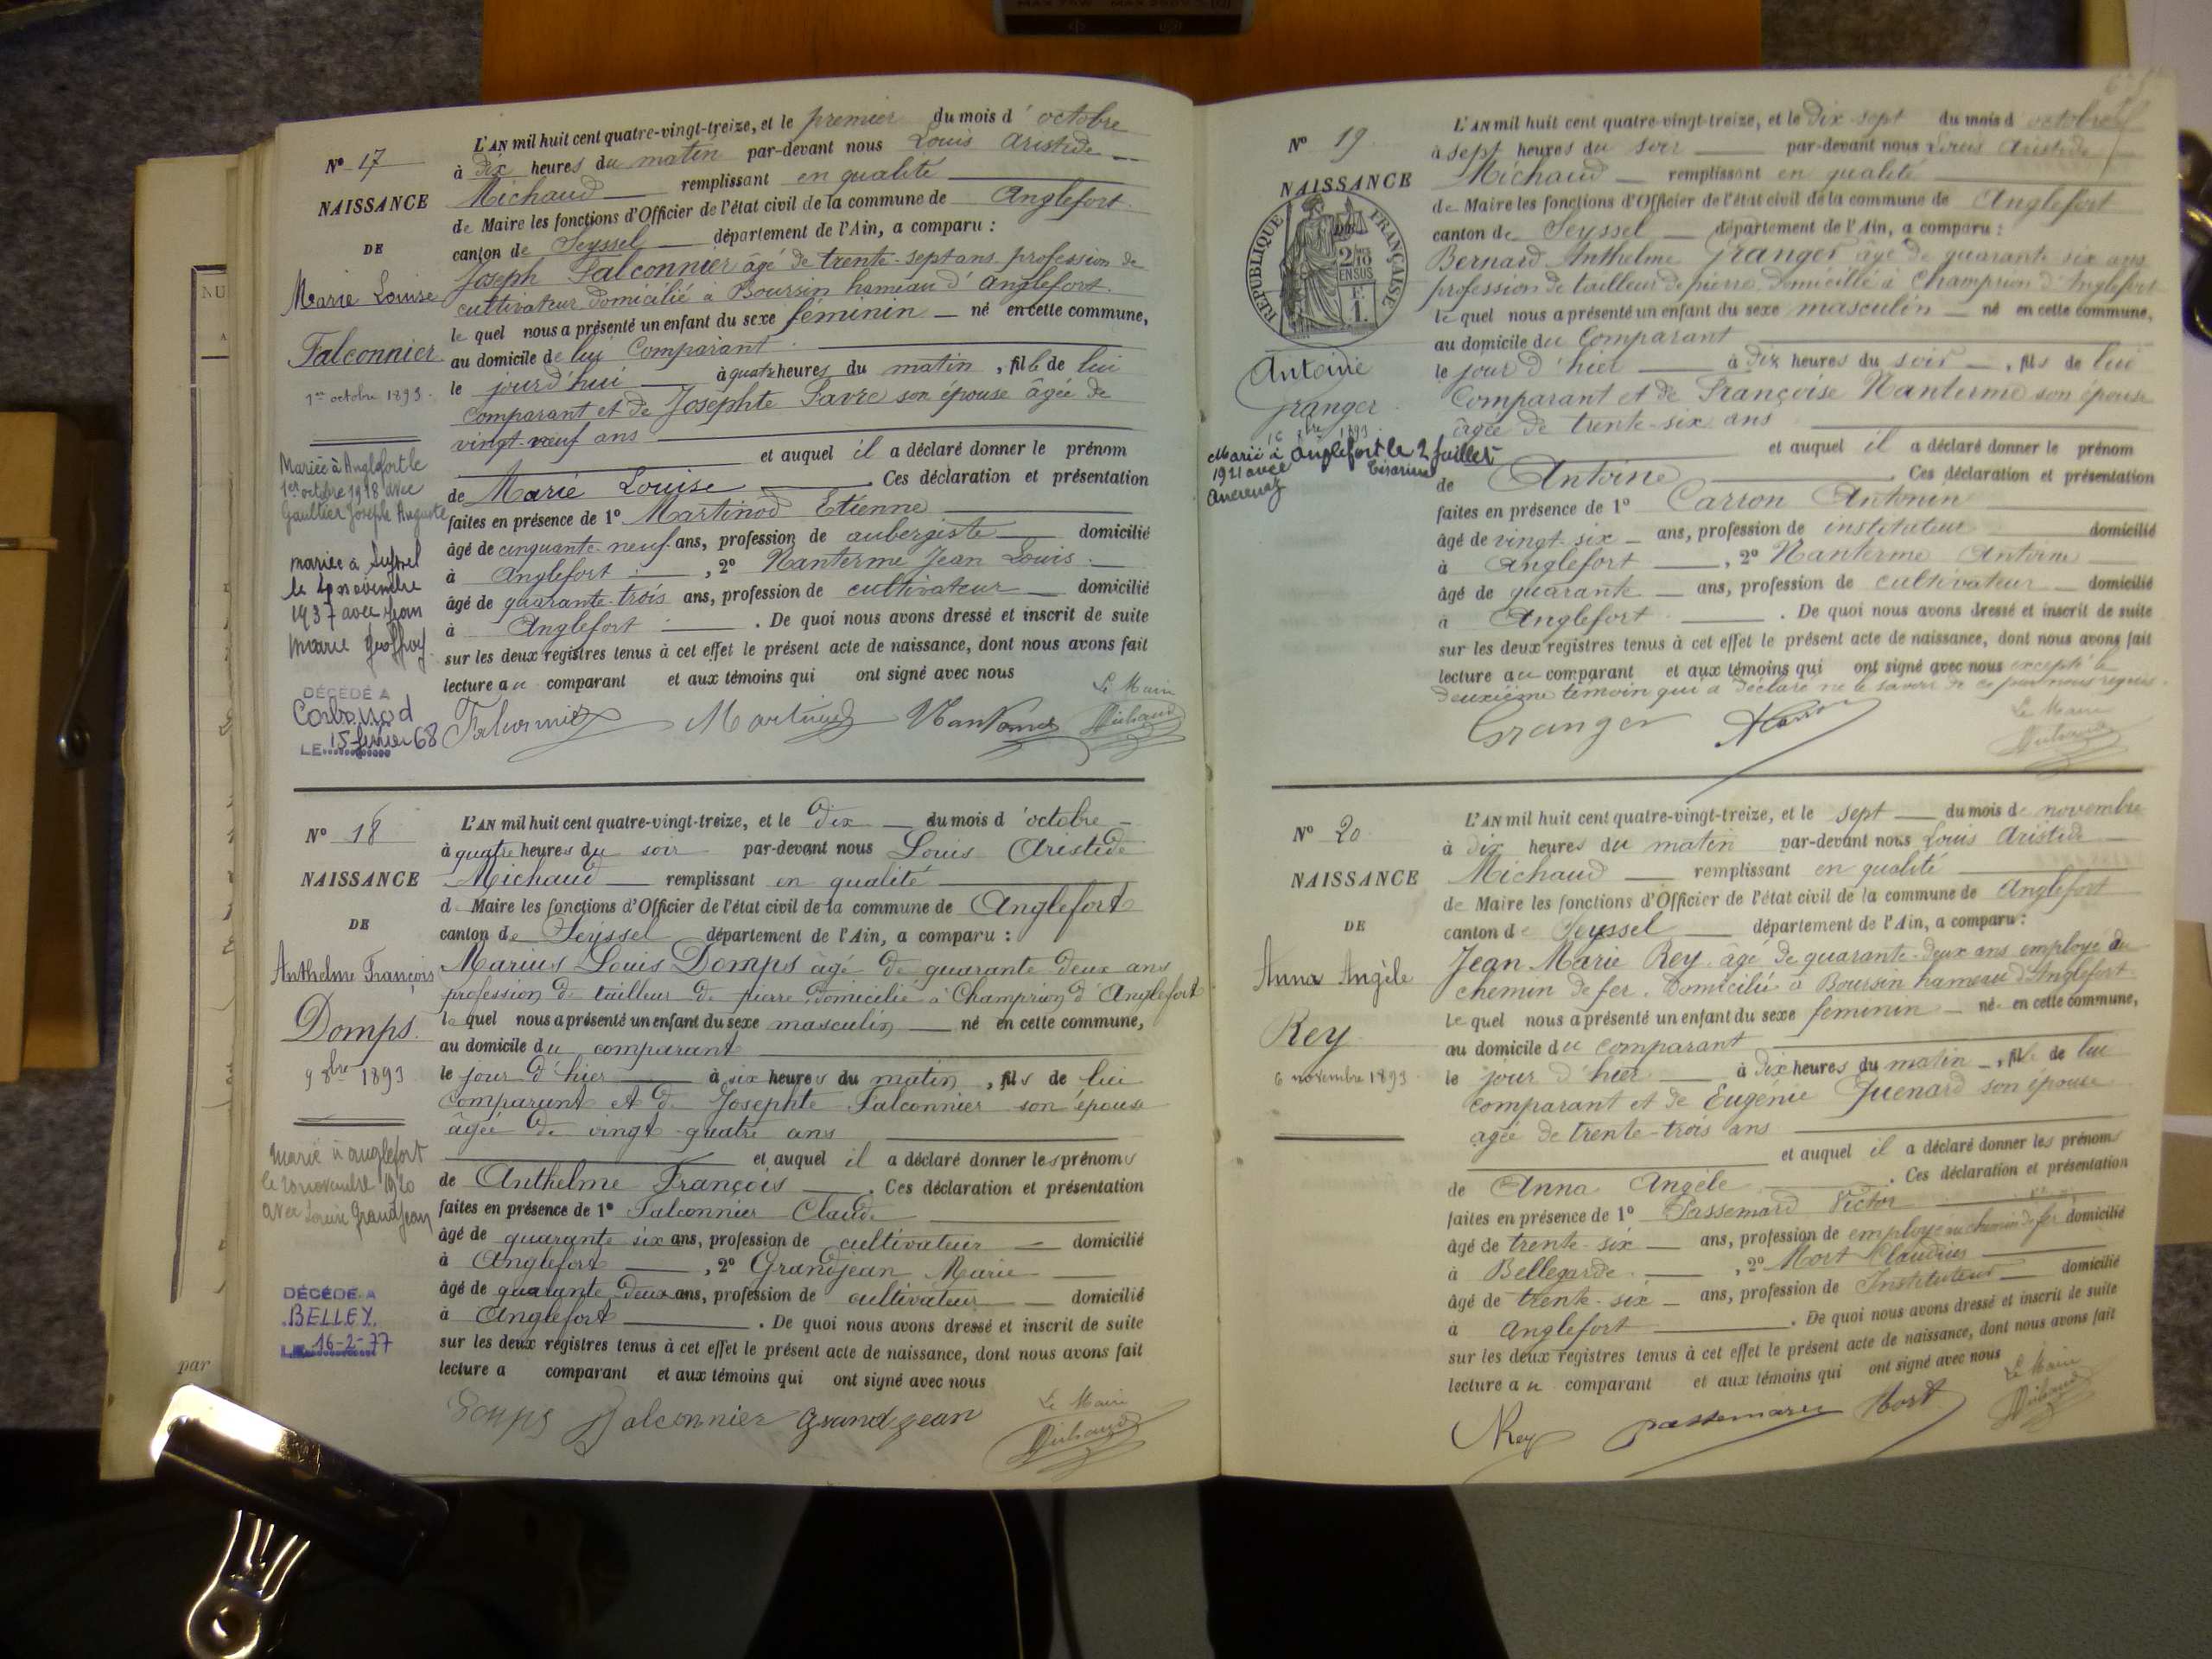 N° 17
NAISSANCE
DE
Marie Louise
Falconnier
1er octobre 1893.
Mariée à Anglefort le
1er octobre 1918 avec
Gaultier Joseph Auguste
mariée à Seyssel
le novembre
1937 avec Jean
Marie Geoffroy
DÉCÉDÉ A
Corbonod
LE 15 février 68
L'AN mil huit cent quatre-vingt-treize, et le premier du mois d'octobre
à dix heures du matin par-devant nous Louis Aristide
Michaud remplissant en qualité
de Maire les fonctions d'Officier de l'état civil de la commune de Anglefort
canton de Seyssel département de l'Ain, a comparu :
Joseph Falconnier âgé de trente-sept ans profession de
cultivateur domicilié à Boursin hameau d'Anglefort.
le quel nous a présenté un enfant du sexe féminin né en cette commune,
au domicile de lui Comparant
le jourd'hui à quatre heures du matin, fille de lui
Comparant et de Josephte Favre son épouse âgée de
vingt-neuf ans
et auquel il a déclaré donner le prénom
de Marie Louise. Ces déclaration et présentation
faites en présence de 1° Martinod Etienne
âgé de cinquante-neuf ans, profession de aubergiste domicilié
à Anglefort, 2° Nanterme Jean Louis
âgé de quarante-trois ans, profession de cultivateur domicilié
à Anglefort. De quoi nous avons dressé et inscrit de suite
sur les deux registres tenus à cet effet le présent acte de naissance, dont nous avons fait
lecture au comparant et aux témoins qui ont signé avec nous
Le Maire
Falconnier Martinod Nanterme Michaud
N° 18
NAISSANCE
DE
Anthelme François
Domps.
9 8bre 1893
Marié à Anglefort
le 20 novembre 1920
avec Louise Grandjean
DÉCÉDÉ A
BELLEY
LE 16-2-77
L'AN mil huit cent quatre-vingt-treize, et le dix du mois d'octobre
à quatre heures du soir par-devant nous Louis Aristide
Michaud remplissant en qualité
d Maire les fonctions d'Officier de l'état civil de la commune de Anglefort
canton de Seyssel département de l'Ain, a comparu :
Marius Louis Domps âgé de quarante deux ans
profession de tailleur de pierre domicilié à Champrion d'Anglefort
le quel nous a présenté un enfant du sexe masculin né en cette commune,
au domicile du comparant
le jour d'hier à six heures du matin, fils de lui
Comparant et de Josephte Falconnier son épouse
âgée de vingt-quatre ans
et auquel il a déclaré donner les prénoms
de Anthelme François. Ces déclaration et présentation
faites en présence de 1° Falconnier Claude
âgé de quarante six ans, profession de cultivateur domicilié
à Anglefort, 2° Grandjean Marie
âgé de quarante deux ans, profession de cultivateur domicilié
à Anglefort. De quoi nous avons dressé et inscrit de suite
sur les deux registres tenus à cet effet le présent acte de naissance, dont nous avons fait
lecture a comparant et aux témoins qui ont signé avec nous
Le Maire
Domps Falconnier Grandjean Michaud
par
N° 19
NAISSANCE
RÉPUBLIQUE FRANÇAISE
2/10 EN SUS
Antoine
Granger
16 8bre 1893
Marié à Anglefort le 2 juillet
1921 avec Césarine
L'AN mil huit cent quatre-vingt-treize, et le dix-sept du mois d octobre
à sept heures du soir par-devant nous Louis Aristide
Michaud remplissant en qualité
de Maire les fonctions d'Officier de l'état civil de la commune de Anglefort
canton de Seyssel département de l'Ain, a comparu :
Bernard Anthelme Granger âgé de quarante six ans
profession de tailleur de pierre domicilié à Champrion d'Anglefort
le quel nous a présenté un enfant du sexe masculin né en cette commune,
au domicile du Comparant
le jour d'hier à dix heures du soir, fils de lui
Comparant et de Françoise Nanterme son épouse
âgée de trente-six ans
et auquel il a déclaré donner le prénom
de Antoine. Ces déclaration et présentation
faites en présence de 1° Carron Antonin
âgé de vingt-six ans, profession de instituteur domicilié
à Anglefort, 2° Nanterme Antoine
âgé de quarante ans, profession de cultivateur domicilié
à Anglefort. De quoi nous avons dressé et inscrit de suite
sur les deux registres tenus à cet effet le présent acte de naissance, dont nous avons fait
lecture au comparant et aux témoins qui ont signé avec nous excepté le
deuxième témoin qui a déclaré ne le savoir de ce par nous requis.
Le Maire
Granger ACarron Michaud
N° 20
NAISSANCE
DE
Anna Angèle
Rey
6 novembre 1893
L'AN mil huit cent quatre-vingt-treize, et le sept du mois de novembre
à dix heures du matin par-devant nous Louis Aristide
Michaud remplissant en qualité
de Maire les fonctions d'Officier de l'état civil de la commune de Anglefort
canton de Seyssel département de l'Ain, a comparu :
Jean Marie Rey âgé de quarante-deux ans employé du
chemin de fer. Domicilié à Boursin hameau d'Anglefort
le quel nous a présenté un enfant du sexe féminin né en cette commune,
au domicile du Comparant
le jour d'hier à dix heures du matin, fille de lui
comparant et de Eugénie Quenard son épouse
âgée de trente-trois ans
et auquel il a déclaré donner les prénoms
de Anna Angèle. Ces déclaration et présentation
faites en présence de 1° Passemard Victor
âgé de trente-six ans, profession de employé au chemin de fer domicilié
à Bellegarde, 2° Mort Claudius
âgé de trente-six ans, profession de Instituteur domicilié
à Anglefort. De quoi nous avons dressé et inscrit de suite
sur les deux registres tenus à cet effet le présent acte de naissance, dont nous avons fait
lecture au comparant et aux témoins qui ont signé avec nous
Le Maire
Rey passemard Mort Michaud